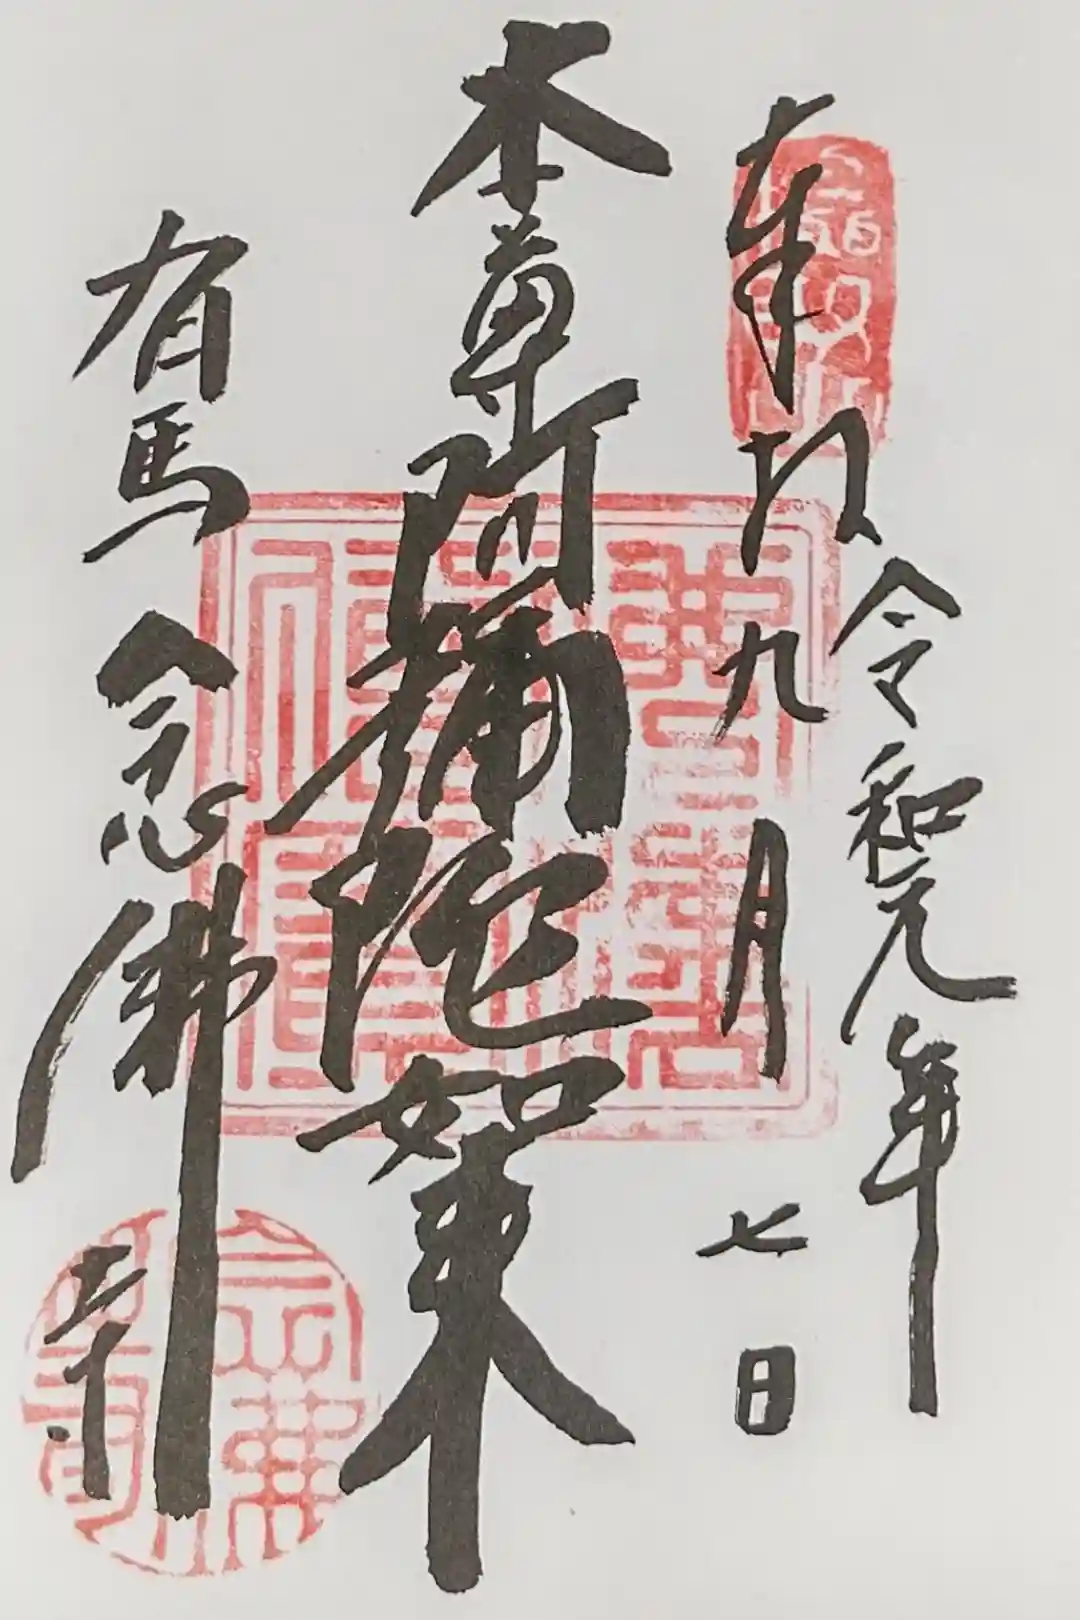 奉拝
令和元年
九月七日
本尊阿彌陀如来
有馬念佛寺